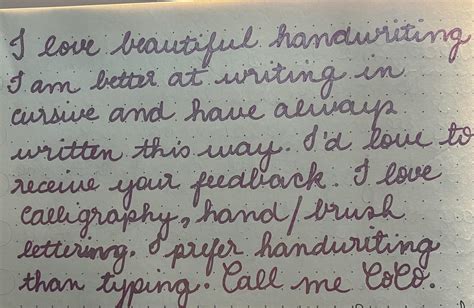 I love beautiful handwriting
I am better at writing in
cursive and have always
written this way. I'd love to
receive your feedback. I love
Calligraphy, hand/brush
lettering. I prefer handwriting
than typing. Call me CoCo.